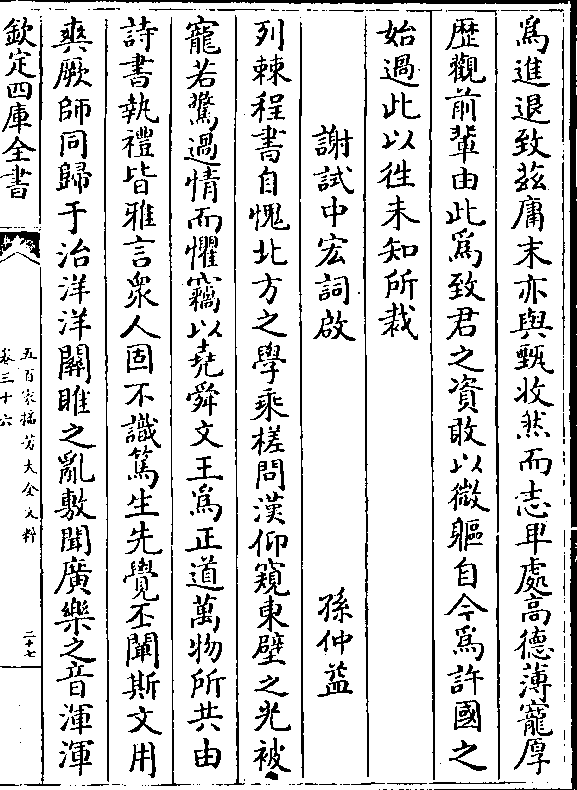 為進退致茲庸末亦與甄收然而志卑處高德薄寵厚
歴觀前輩由此為致君之資敢以微軀自今為許國之
始過此以徃未知所裁
謝試中宏詞啟
孫仲益
列棘程書自愧北方之學乘槎問漢仰窺東壁之光被
寵若驚過情而懼竊以堯舜文王為正道萬物所共由
詩書執禮皆雅言衆人固不識篤生先覺丕闡斯文用
爽厥師同歸于治洋洋關雎之亂敷聞廣樂之音渾渾
欽定四庫全書
五百家播芳大全文粹
卷三十六
二十七